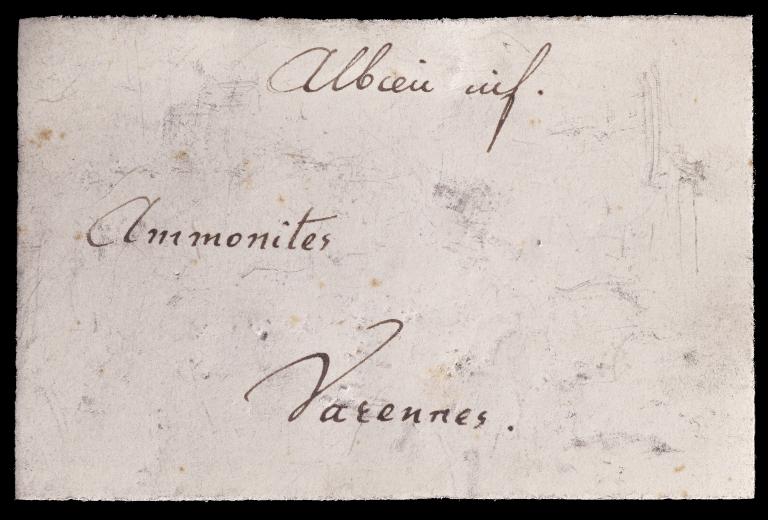 Albien inf.
Ammonites
Varennes.